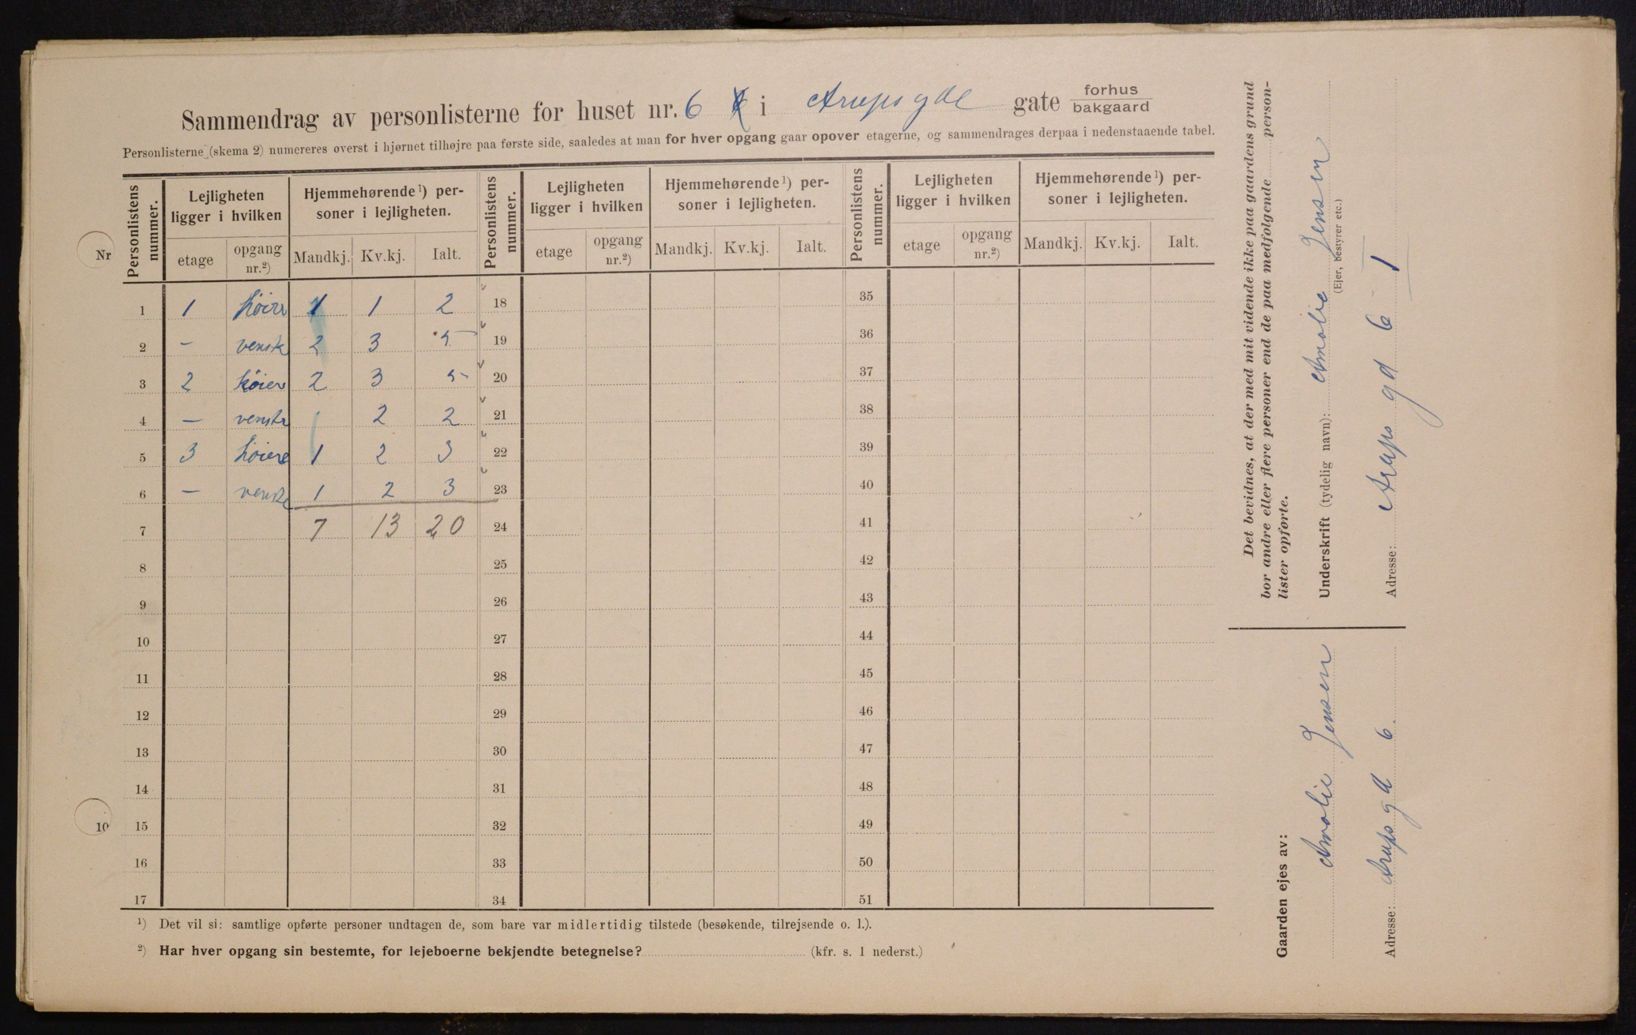 Sammendrag av personlisterne for huset nr. 6 i Arupsgde gate forhus bakgaard
Personlisterne (skema 2) numereres øverst i hjørnet tilhøjre paa første side, saaledes at man for hver opgang gaar opover etagerne, og sammendrages derpaa i nedenstaaende tabel.
Personlistens nummer. Lejligheten ligger i hvilken Hjemmehørende¹) personer i lejligheten. Personlistens nummer. Lejligheten ligger i hvilken Hjemmehørende¹) personer i lejligheten. Personlistens nummer. Lejligheten ligger i hvilken Hjemmehørende¹) personer i lejligheten.
etage opgang nr.²) Mandkj. Kv.kj. Ialt. etage opgang nr.²) Mandkj. Kv.kj. Ialt. etage opgang nr.²) Mandkj. Kv.kj. Ialt.
Nr
1 1 høire 1 1 2 18 35
2 – venstr 2 3 5 19 36
3 2 høier 2 3 5 20 37
4 – venstr 2 2 21 38
5 3 høiere 1 2 3 22 39
6 – venstre 1 2 3 23 40
7 7 13 20 24 41
8 25 42
9 26 43
10 27 44
11 28 45
12 29 46
13 30 47
14 31 48
10 15 32 49
16 33 50
17 34 51
¹) Det vil si: samtlige opførte personer undtagen de, som bare var midlertidig tilstede (besøkende, tilrejsende o. l.).
²) Har hver opgang sin bestemte, for lejeboerne bekjendte betegnelse? (kfr. s. 1 nederst.)
Det bevidnes, at der med mit vidende ikke paa gaardens grund
bor andre eller flere personer end de paa medfølgende person-
lister opførte.
Underskrift (tydelig navn): Amalie Jensen
(Ejer, bestyrer etc.)
Adresse: Arups gd 6 I
Gaarden ejes av:
Amalie Jensen
Adresse: Arups gd 6.